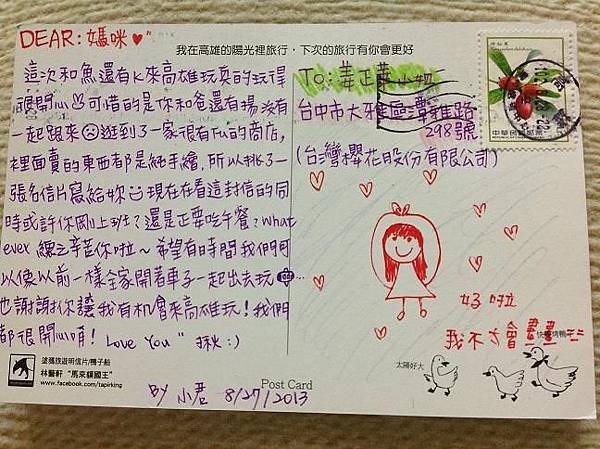 DEAR: 媽咪♥"
我在高雄的陽光裡旅行，下次的旅行有你會更好
這次和魚還有K來高雄玩真的玩得
很開心 可惜的是你和爸還有揚沒有
一起跟來☹逛到了一家很有Fu的商店，
裡面賣的東西都是純手繪，所以挑了一
張名信片寫給妳 現在在看這封信的同
時或許你剛上班？還是正要吃午餐？What
ever 總之辛苦你啦～希望有時間我們可
以像以前一樣全家開著車子一起出去玩
也謝謝你讓我有机會來高雄玩！我們
都很開心唷！Love You " 揪:)
By 小君 8/27/2013
To: 姜正 小姐
台中市大雅區潭雅路
298號
(台灣櫻花股份有限公司)
中華民國郵票
好啦
我不才會畫畫
太陽好大
塗鴉旅遊明信片/鴨子船
林藝軒 "馬來貘國王"
www.facebook.com/tapirking
Post Card